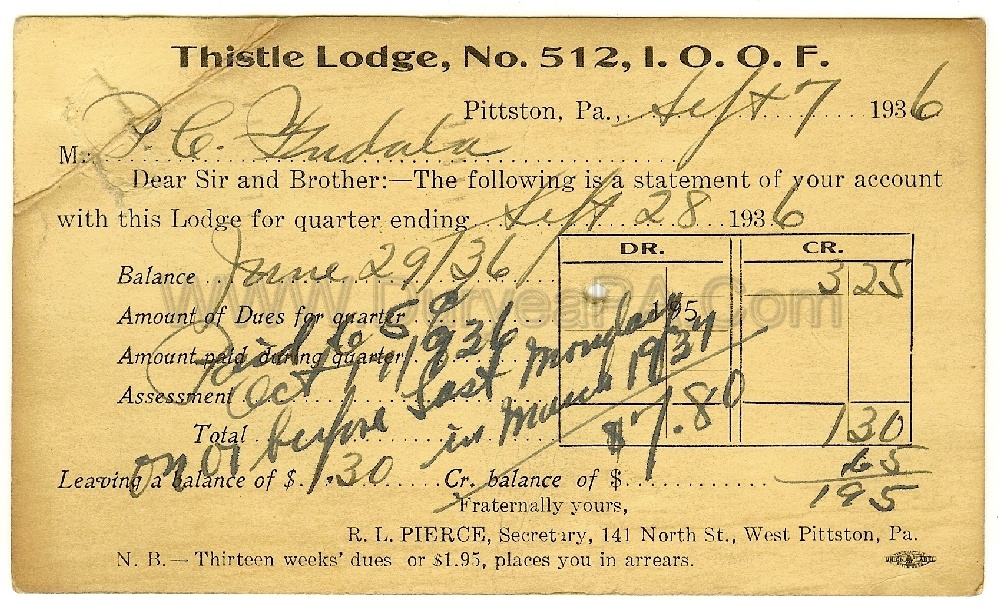 Thistle Lodge, No. 512, I. O. O. F.
Pittston, Pa., Sept 7 1936
M. P. C.
Dear Sir and Brother:—The following is a statement of your account
with this Lodge for quarter ending Sept 28 1936
DR. CR.
Balance June 29/36 3 25
www.DuryeaPA.Com
Amount of Dues for quarter 1 95
Amount paid during quarter
Paid 65¢
Oct 1936
Assessment
on or before last Monday
in March 1937
$7.80
Total 1 30
Leaving a balance of $ 1.30 Cr. balance of $
65
195
Fraternally yours,
R. L. PIERCE, Secretary, 141 North St., West Pittston, Pa.
N. B.— Thirteen weeks' dues or $1.95, places you in arrears.